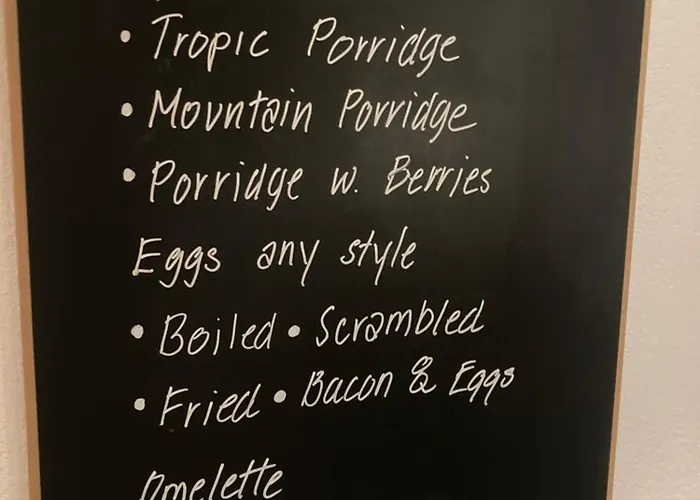 • Tropic Porridge
• Mountain Porridge
• Porridge w. Berries
Eggs any style
• Boiled • Scrambled
• Fried • Bacon & Eggs
Omelette